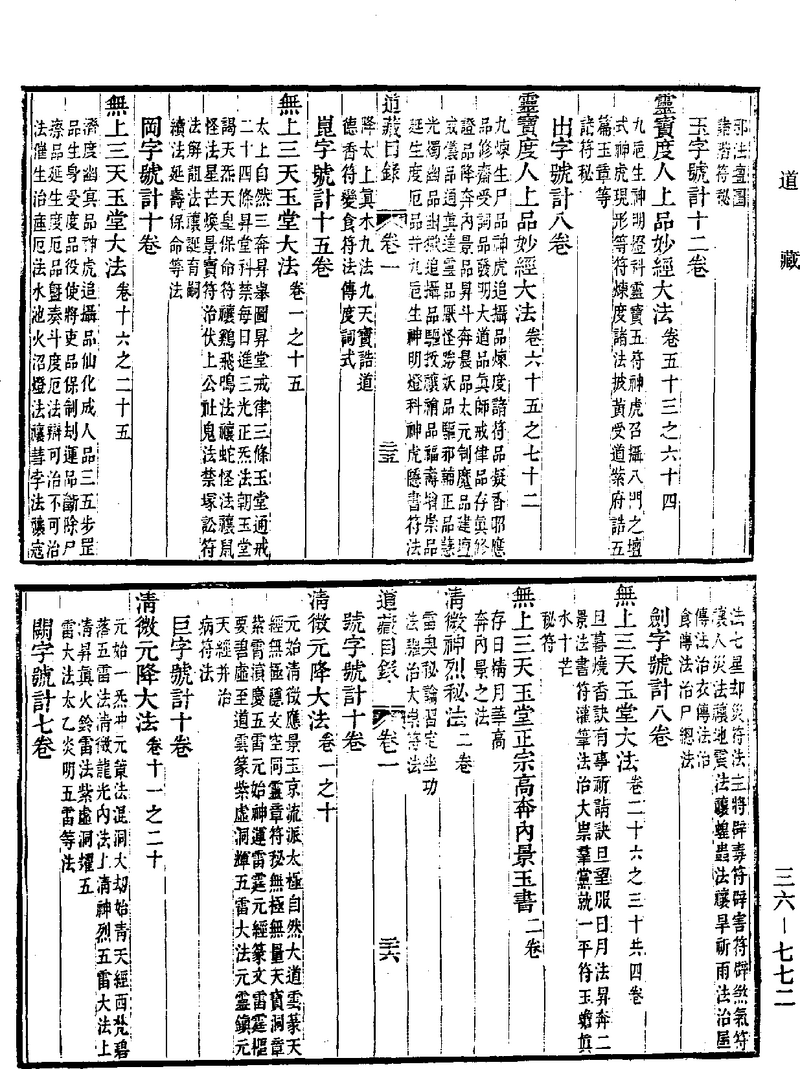 道藏
邪法壇圖
諸階符秘
玉字號計十二卷
靈寶度人上品妙經大法 卷五十三之六十四
九巵生神明燈科靈寶五符神虎召攝八門之壇
式神虎現形等符煉度諸法披黃受道紫府誥五
篇玉章等
諸符秘
出字號計八卷
靈寶度人上品妙經大法 卷六十五之七十二
九煉生尸品神虎追攝品煉度諸符品擬香昭應
品修齋受詞品發明大道品真師戒律品存真修
證品降奔內景品昇斗奔晨品太元制魔品建壇
威儀品通真達靈品厭怪勝妖品驅邪輔正品慧
光燭幽品幽獄追攝品驅教禳禬品福壽增崇品
延生度厄品并九巵生神明燈科神虎隱書符法
道藏目錄 卷一 三五
降太上真水九法九天寶誥道
德香符變食符法傳度詞式
崑字號計十五卷
無上三天玉堂大法 卷一之十五
太上自然三奔昇舉圖昇堂戒律三條玉堂通戒
二十四條昇堂科禁每日進三光正炁法朝玉堂
謁天炁天皇保命符禳鷄飛鳴法禳蛇怪法禳鼠
怪法星芒埃景寶符治伏上公祉鬼法禁塚訟符
法解詛法禳誕育嗣
續法延壽保命等法
岡字號計十卷
無上三天玉堂大法 卷十六之二十五
濟度幽冥品神虎追攝品仙化成人品三五步罡
品生身受度品役使將吏品保制刼運品斷除尸
瘵品延生度厄品醫奏斗度厄法辯可治不可治
法催生治瘧厄法水池火沼燈法禳彗孛法禳寇
法七星却災符法主將辟毒符辟害符辟煞氣符
禳人災法禳地震法禳蝗蟲法禳旱祈雨法治屋
傳法治衣傳法治
食傳法治尸總法
劍字號計八卷
無上三天玉堂大法 卷二十六之三十共四卷
旦暮境香訣有事祈請訣旦望服日月法昇奔二
景法書符灌筆法治大祟羣黨就一平符玉蟾真
水十芒
秘符
無上三天玉堂正宗高奔內景玉書 二卷
存日精月華高
奔內景之法
清微神烈秘法 二卷
雷奥秘論習定坐功
法驅治大祟符法
道藏目錄 卷一 三六
號字號計十卷
清微元降大法 卷一之十
元始清微應景玉京流派太極自然大道雲篆天
經無極隱文空洞靈章符秘無極無量天寶洞章
紫霄濵慶五雷元始神運雷霆元經篆文雷霆樞
要碧虛至道雲篆紫虛洞輝五雷大法元靈鎮元
天經并治
病符法
巨字號計十卷
清微元降大法 卷十一之二十
元始一炁冲元策法混洞大刼始青天經西梵碧
落五雷法清微龍光內法上清神烈五雷大法上
清昇真火鈴雷法紫虛洞耀五
雷大法太乙炎明五雷等法
闕字號計七卷
三六—七七二